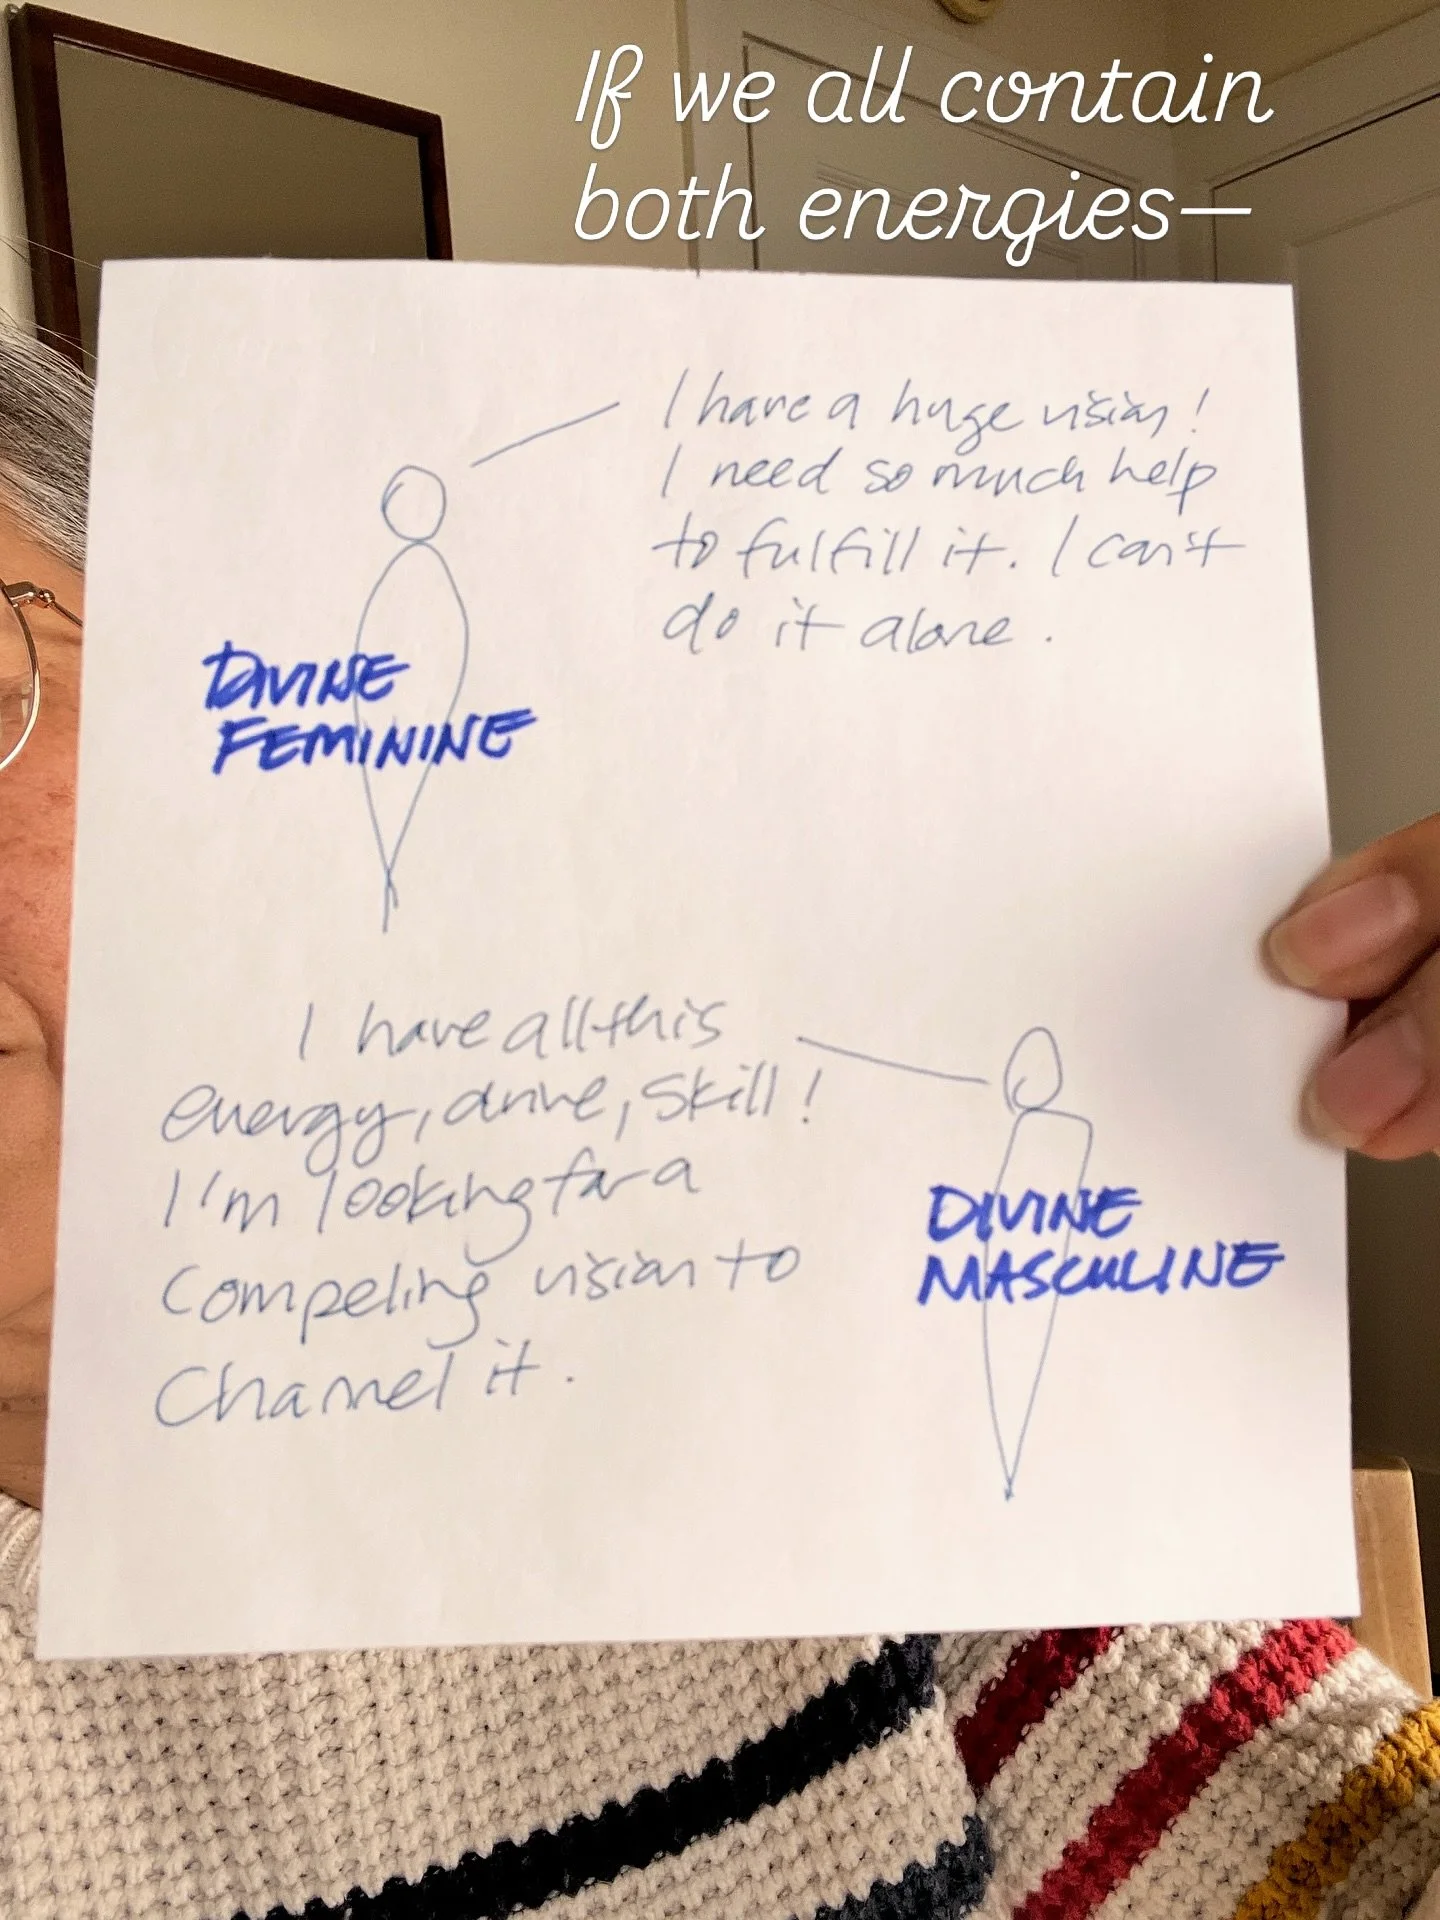 If we all contain
both energies—
I have a huge vision!
I need so much help
to fulfill it. I can't
do it alone.
DIVINE
FEMININE
I have all this
energy, drive, skill!
I'm looking for a
compeling vision to
channel it.
DIVINE
MASCULINE